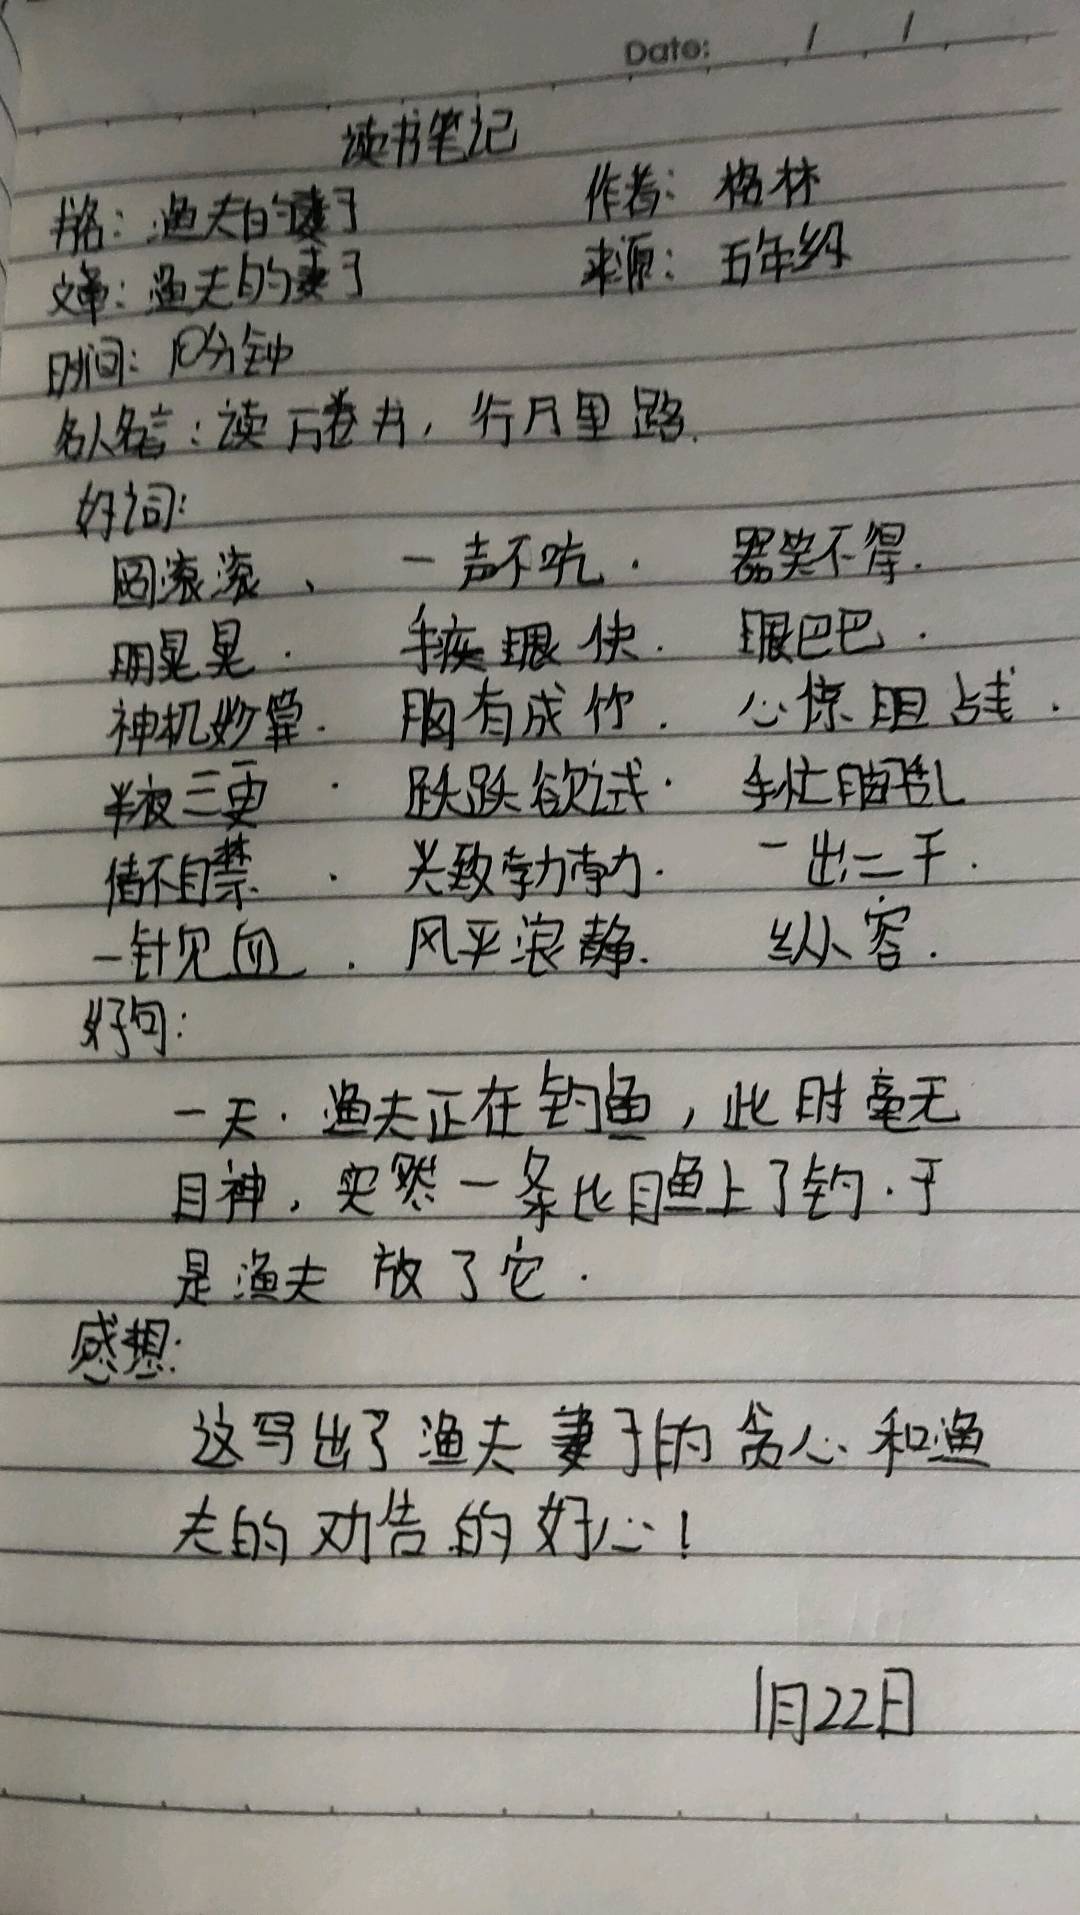 Date: / /
读书笔记
书名：渔夫的妻子 作者：格林
文章：渔夫的妻子 来源：五年级
时间：10分钟
名人名言：读万卷书，行万里路.
好词：
圆滚滚、 一声不吭. 哭笑不得.
明晃晃. 手疾眼快. 眼巴巴.
神机妙算. 胸有成竹. 心惊胆战.
半夜三更. 跃跃欲试. 手忙脚乱
情不自禁. 兴致勃勃. 一出二干.
一针见血. 风平浪静. 纵容.
好句：
一天.渔夫正在钓鱼，此时毫无
目神，突然一条比目鱼上了钓.于
是渔夫放了它.
感想：
这写出了渔夫妻子的贪心和渔
夫的劝告的好心！
1月22日